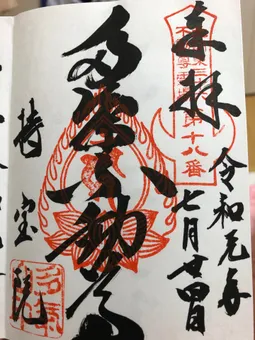 奉拝
第十八番
令和元年
七月廿四日
多気不動尊
持宝院